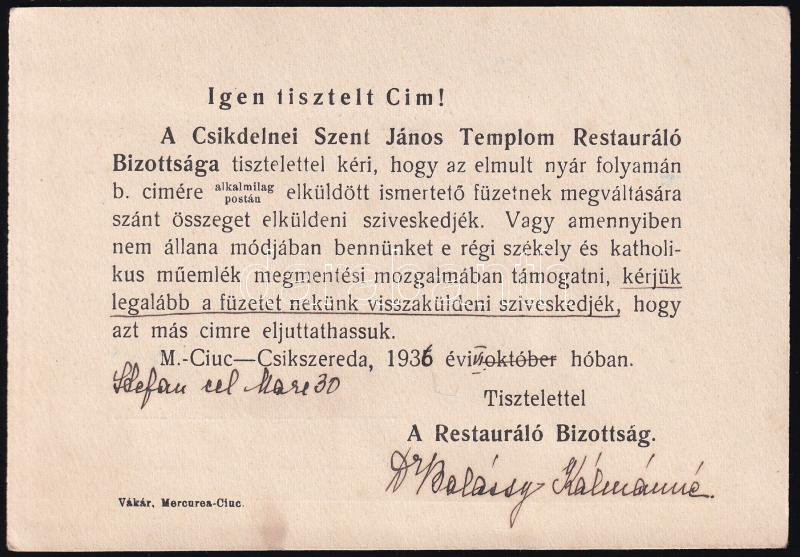 Igen tisztelt Cim!
A Csikdelnei Szent János Templom Restauráló
Bizottsága tisztelettel kéri, hogy az elmult nyár folyamán
b. cimére alkalmilag postán elküldött ismertető füzetnek megváltására
szánt összeget elküldeni sziveskedjék. Vagy amennyiben
nem állana módjában bennünket e régi székely és katholi-
kus műemlék megmentési mozgalmában támogatni, kérjük
legalább a füzetet nekünk visszaküldeni sziveskedjék, hogy
azt más cimre eljuttathassuk.
M.-Ciuc—Csikszereda, 1936 évi VI október hóban.
Stefan cel Mare 30
Tisztelettel
A Restauráló Bizottság.
Dr Balássy Kálmánné.
Vákár, Mercurea-Ciuc.